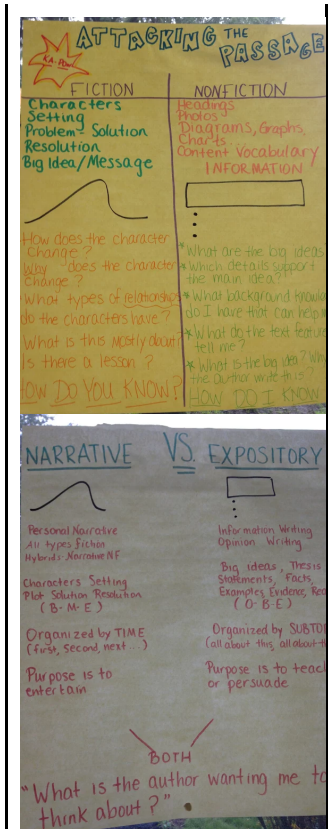 ATTACKING THE PASSAGE
KA-POW!
FICTION
Characters
Setting
Problem - Solution
Resolution
Big Idea/Message
How does the character
Change?
Why does the character
Change?
What types of relationships
do the characters have?
What is this mostly about?
Is there a lesson?
HOW DO YOU KNOW?
NONFICTION
Headings
Photos
Diagrams, Graphs,
Charts...
Content Vocabulary
INFORMATION
*What are the big ideas
*Which details support
the main idea?
*What background
do I have that can help
*What do the text
tell me?
*What is the big idea? Why
the author write this
HOW DO I KNOW
NARRATIVE VS. EXPOSITORY
Personal Narrative
All types fiction
Hybrids- Narrative NF
Characters Setting
Plot Solution Resolution
(B-M-E)
Organized by TIME
(first, second, next...)
Purpose is to
entertain
Information Writing
Opinion Writing
Big ideas, Thesis
Statements, Facts,
Examples, Evidence,
(O-B-E)
Organized by
(all about this, all about
Purpose is to teach
or persuade
BOTH
"What is the author wanting me to
think about?"